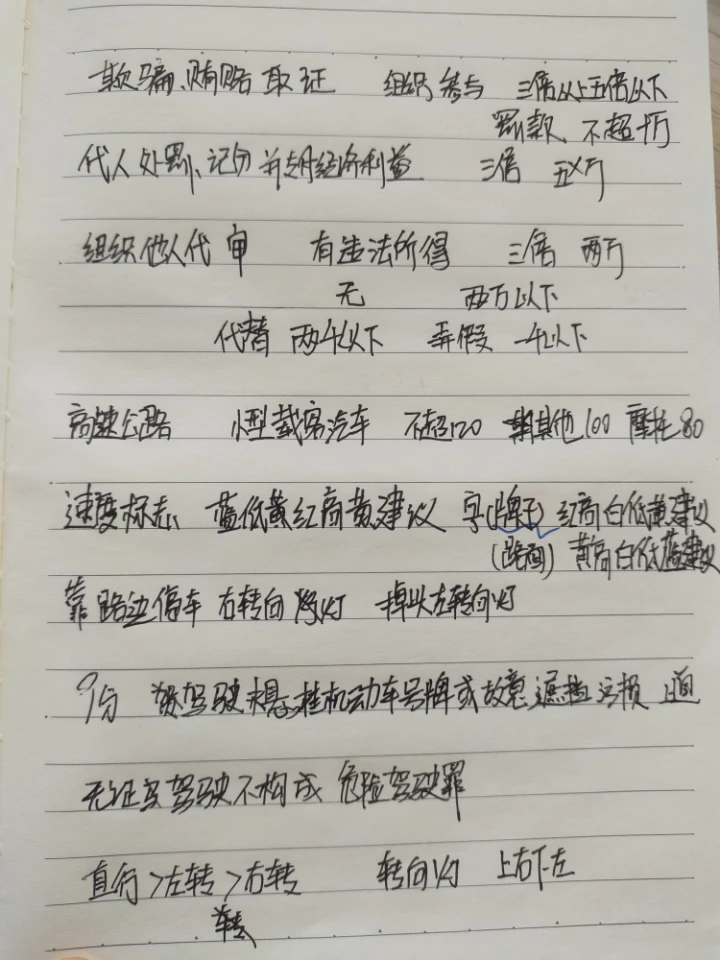 欺骗、贿赂取证 组织、参与 三倍以上五倍以下
罚款、不超十万
代人处罚、记分并支付经济利益 三倍 五万
组织他人代审 有违法所得 三倍 两万
无 两万以下
代替 两千以下 弄假 一千以下
高速公路 小型载客汽车 不超120 其他100 摩托80
速度标志 蓝低黄红高黄建议 字(牌子) 红高白低黄建议
(路面) 黄高白低蓝建议
靠路边停车 右转向灯 掉头左转向灯
9分 驾驶未悬挂机动车号牌或故意遮挡污损
无证驾驶不构成危险驾驶罪
直行>左转>右转 转向灯 上右下左